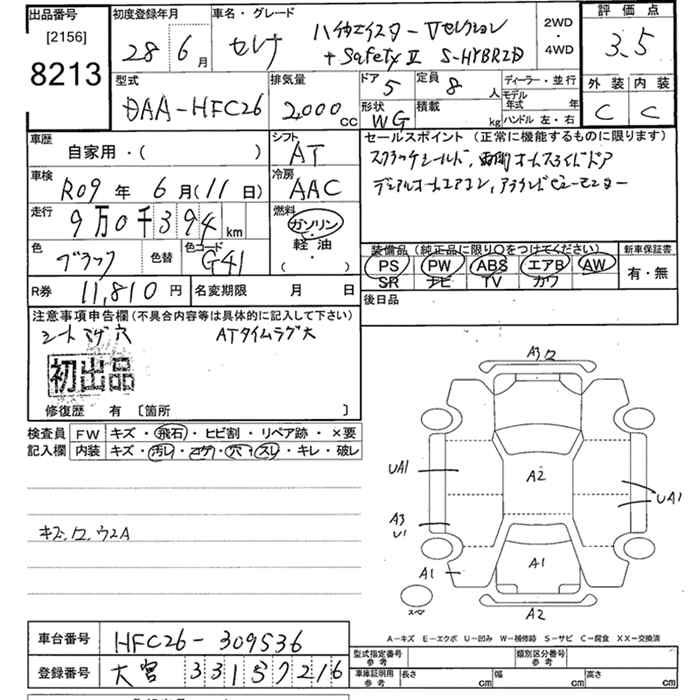 出品番号
[2156]
8213
初度登録年月
28 6月
車名・グレード
セレナ
ハイウェイスター Vセレクション
+ Safety Ⅱ S-HYBRID
2WD
・
4WD
評価点
3.5
外装 内装
C C
型式
DAA-HFC26
排気量
2,000 cc
ドア
5
定員
8 人
形状
WG
積載
kg
ディーラー・並行
モデル
年式 年
ハンドル 左・右
車歴
自家用・( )
シフト
AT
車検
R09 年 6月(11日)
冷房
AAC
走行
9万0千394 km
燃料
ガソリン
軽油
( ・ )
色
ブラック
色替
色コード
G41
R券
11,810 円
名変期限 月 日
セールスポイント (正常に機能するものに限ります)
スクラッチシールド,両側オートスライドドア
デュアルオートエアコン,アラウンドビューモニター
装備品(純正品に限り○をつけてください)
PS PW ABS エアB AW
SR ナビ TV カワ
新車保証書
有・無
後日品
注意事項申告欄(不具合内容等は具体的に記入して下さい)
シートコゲ穴 ATタイムラグ大
初出品
修復歴 有 [箇所 ]
検査員
記入欄
FW キズ・飛石・ヒビ割・リペア跡・×要
内装 キズ・汚レ・コゲ・穴・スレ・キレ・破レ
キズ,ワ,ウ2A
A3 ワ
UA1
A2
UA1
A3
U1
A1
A1
A2
スペア
A−キズ E−エクボ U−凹み W−補修跡 S−サビ C−腐食 XX−交換済
車台番号
HFC26-309536
登録番号
大宮 331 ら 7216
型式指定番号
参考
類別区分番号
参考
車庫証明用
参考
長さ cm 幅 cm 高さ cm